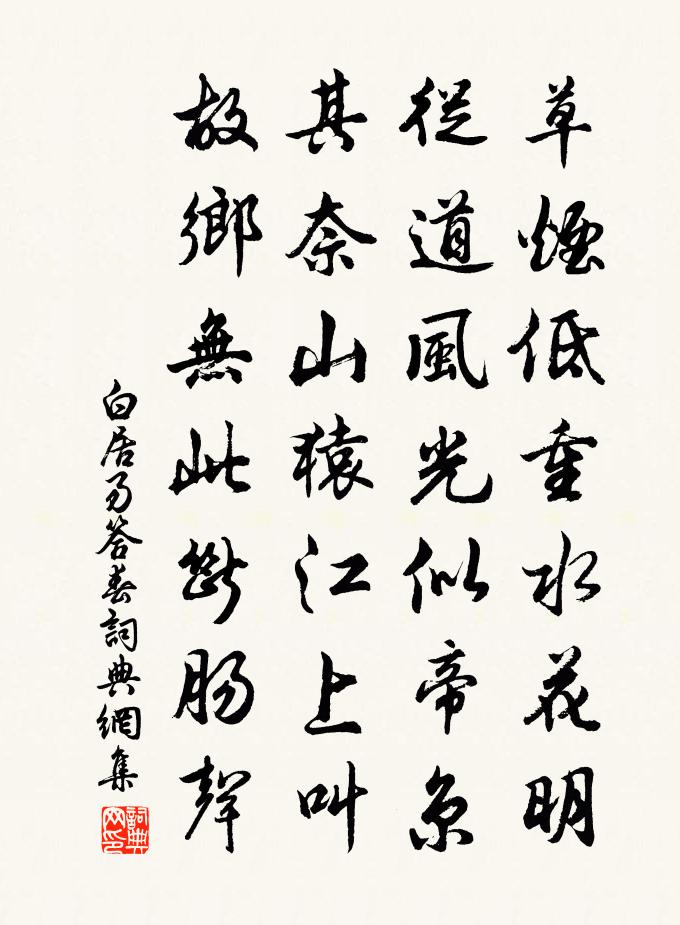 草煙低重水花明
從道風光似帝京
其奈山猿江上叫
故鄉無此斷腸聲
白居易答春詞典網集
詞典网印